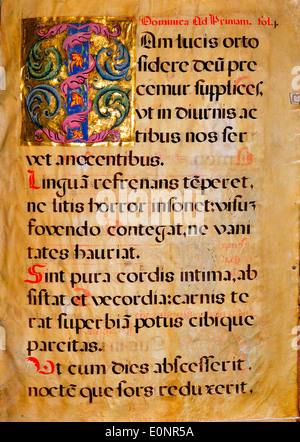 Dominica Ad Primam. fol. 1.
Iam lucis orto
sidere deū pre
cemur supplices,
vt in diurnis ac
tibus nos ser
vet anocentibus.
Linguā refrenans tēperet,
ne litis horror insonet: visuƺ
fovendo contegat, ne vani
tates hauriat.
Sint pura cordis intima, ab
sistat et vecordia: carnis te
rat superbiā potus cibique
parcitas.
Vt cum dies abscesserit,
noctē que sors reduxerit,
alamy
Image ID: E0NR5A
www.alamy.com